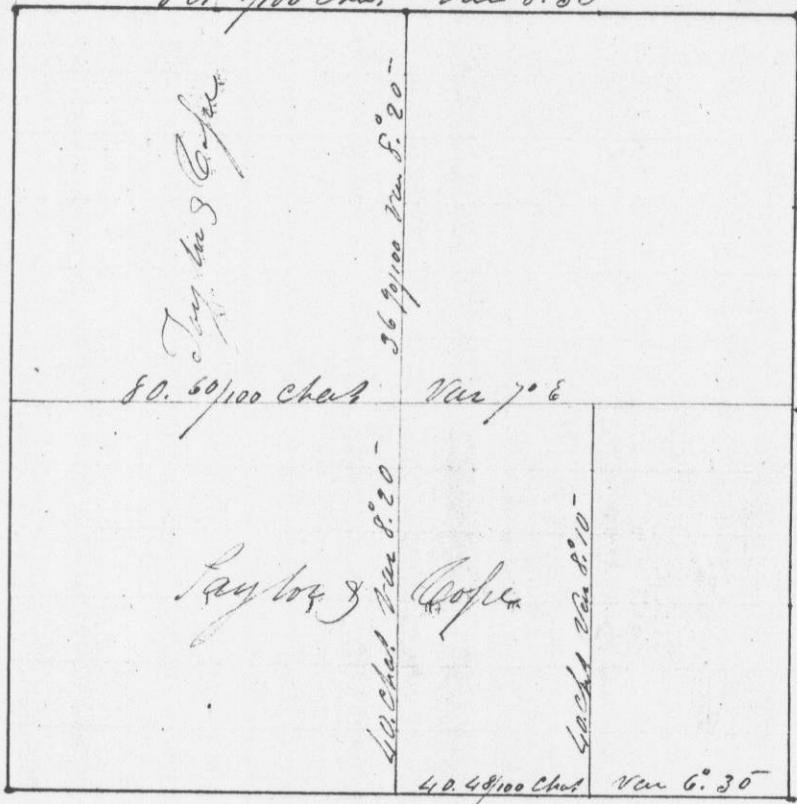 Var 8.° 30
Taylor & Cope
36 90/100 Var 8.° 20
80. 60/100 Chas Var 7° E
Taylor & Cope
40. Chas Var 8.° 20
40. Chs Var 8.° 10
40. 48/100 Chas Var 6.° 30